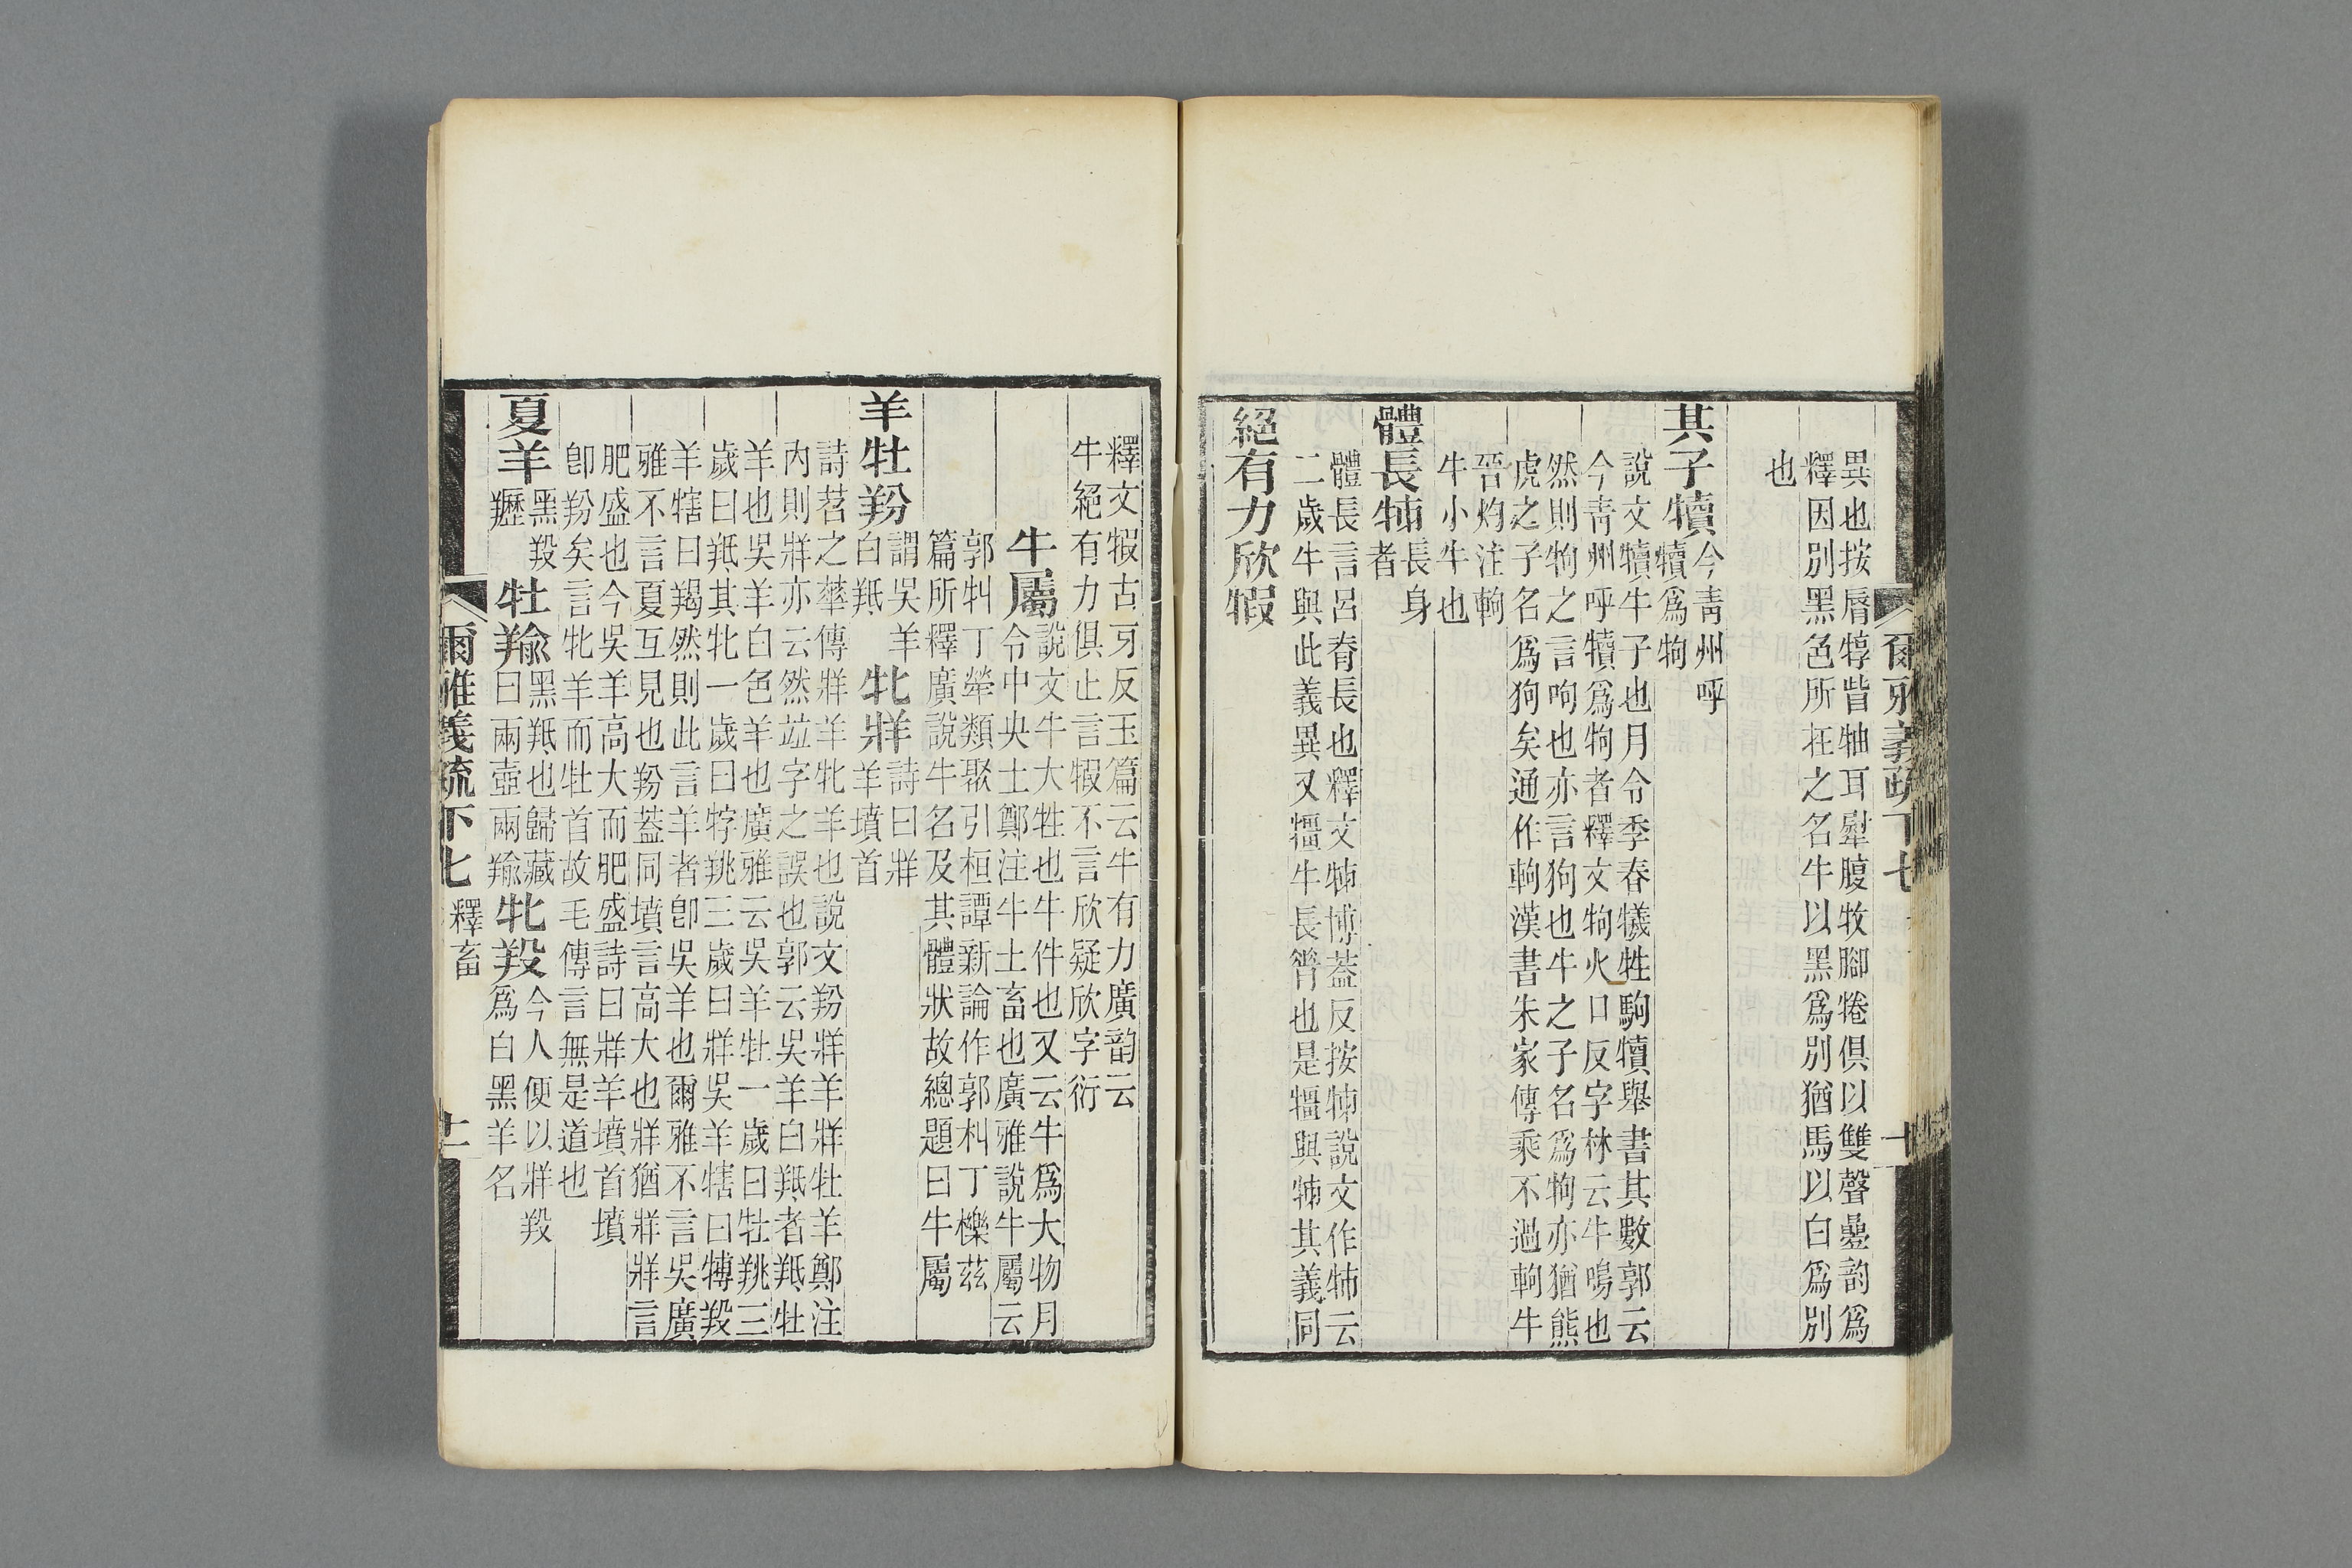 異也按脣犉眥牰耳犚腹牧腳犈俱以雙聲疊韵爲
釋因別黑色所在之名牛以黑爲別猶馬以白爲別
也
其子犢今靑州呼
犢爲㸬
說文犢牛子也月令季春犧牲駒犢舉書其數郭云
今靑州呼犢爲㸬者釋文㸬火口反字林云牛鳴也
然則㸬之言呴也亦言狗也牛之子名爲㸬亦猶熊
虎之子名爲狗矣通作軥漢書朱家傳乘不過軥牛
晉灼注軥
牛小牛也
體長牬長身
者
體長言呂脊長也釋文牬博蓋反按牬說文作㸬云
二歲牛與此義異又㹔牛長膂也是㹔與牬其義同
絕有力欣犌
釋文犌古牙反玉篇云牛有力廣韵云
牛絕有力俱止言犌不言欣疑欣字衍
牛屬
說文牛大牲也牛件也又云牛爲大物月
令中央土鄭注牛土畜也廣雅說牛屬云
郭㸫丁犖類聚引桓譚新論作郭朻丁櫟茲
篇所釋廣說牛名及其體狀故總題曰牛屬
羊牡羒謂吳羊
白羝
牝牂詩曰牂
羊墳首
詩苕之華傳牂羊牝羊也說文羒牂羊牂牡羊鄭注
內則牂亦云然竝字之誤也郭云吳羊白羝者羝牡
羊也吳羊白色羊也廣雅云吳羊牡一歲曰牡𦍩三
歲曰羝其牝一歲曰牸𦍩三歲曰牂吳羊犗曰㹇羖
羊犗曰羯然則此言羊者卽吳羊也爾雅不言吳廣
雅不言夏互見也羒蓋同墳言高大也牂猶牂牂言
肥盛也今吳羊高大而肥盛詩曰牂羊墳首墳
卽羒矣言牝羊而牡首故毛傳言無是道也
夏羊黑羖
䍽
牡羭黑羝也歸藏
曰兩壺兩羭
牝羖今人便以牂羖
爲白黑羊名
爾雅義疏下七
釋畜
十一
爾雅義疏下七
十